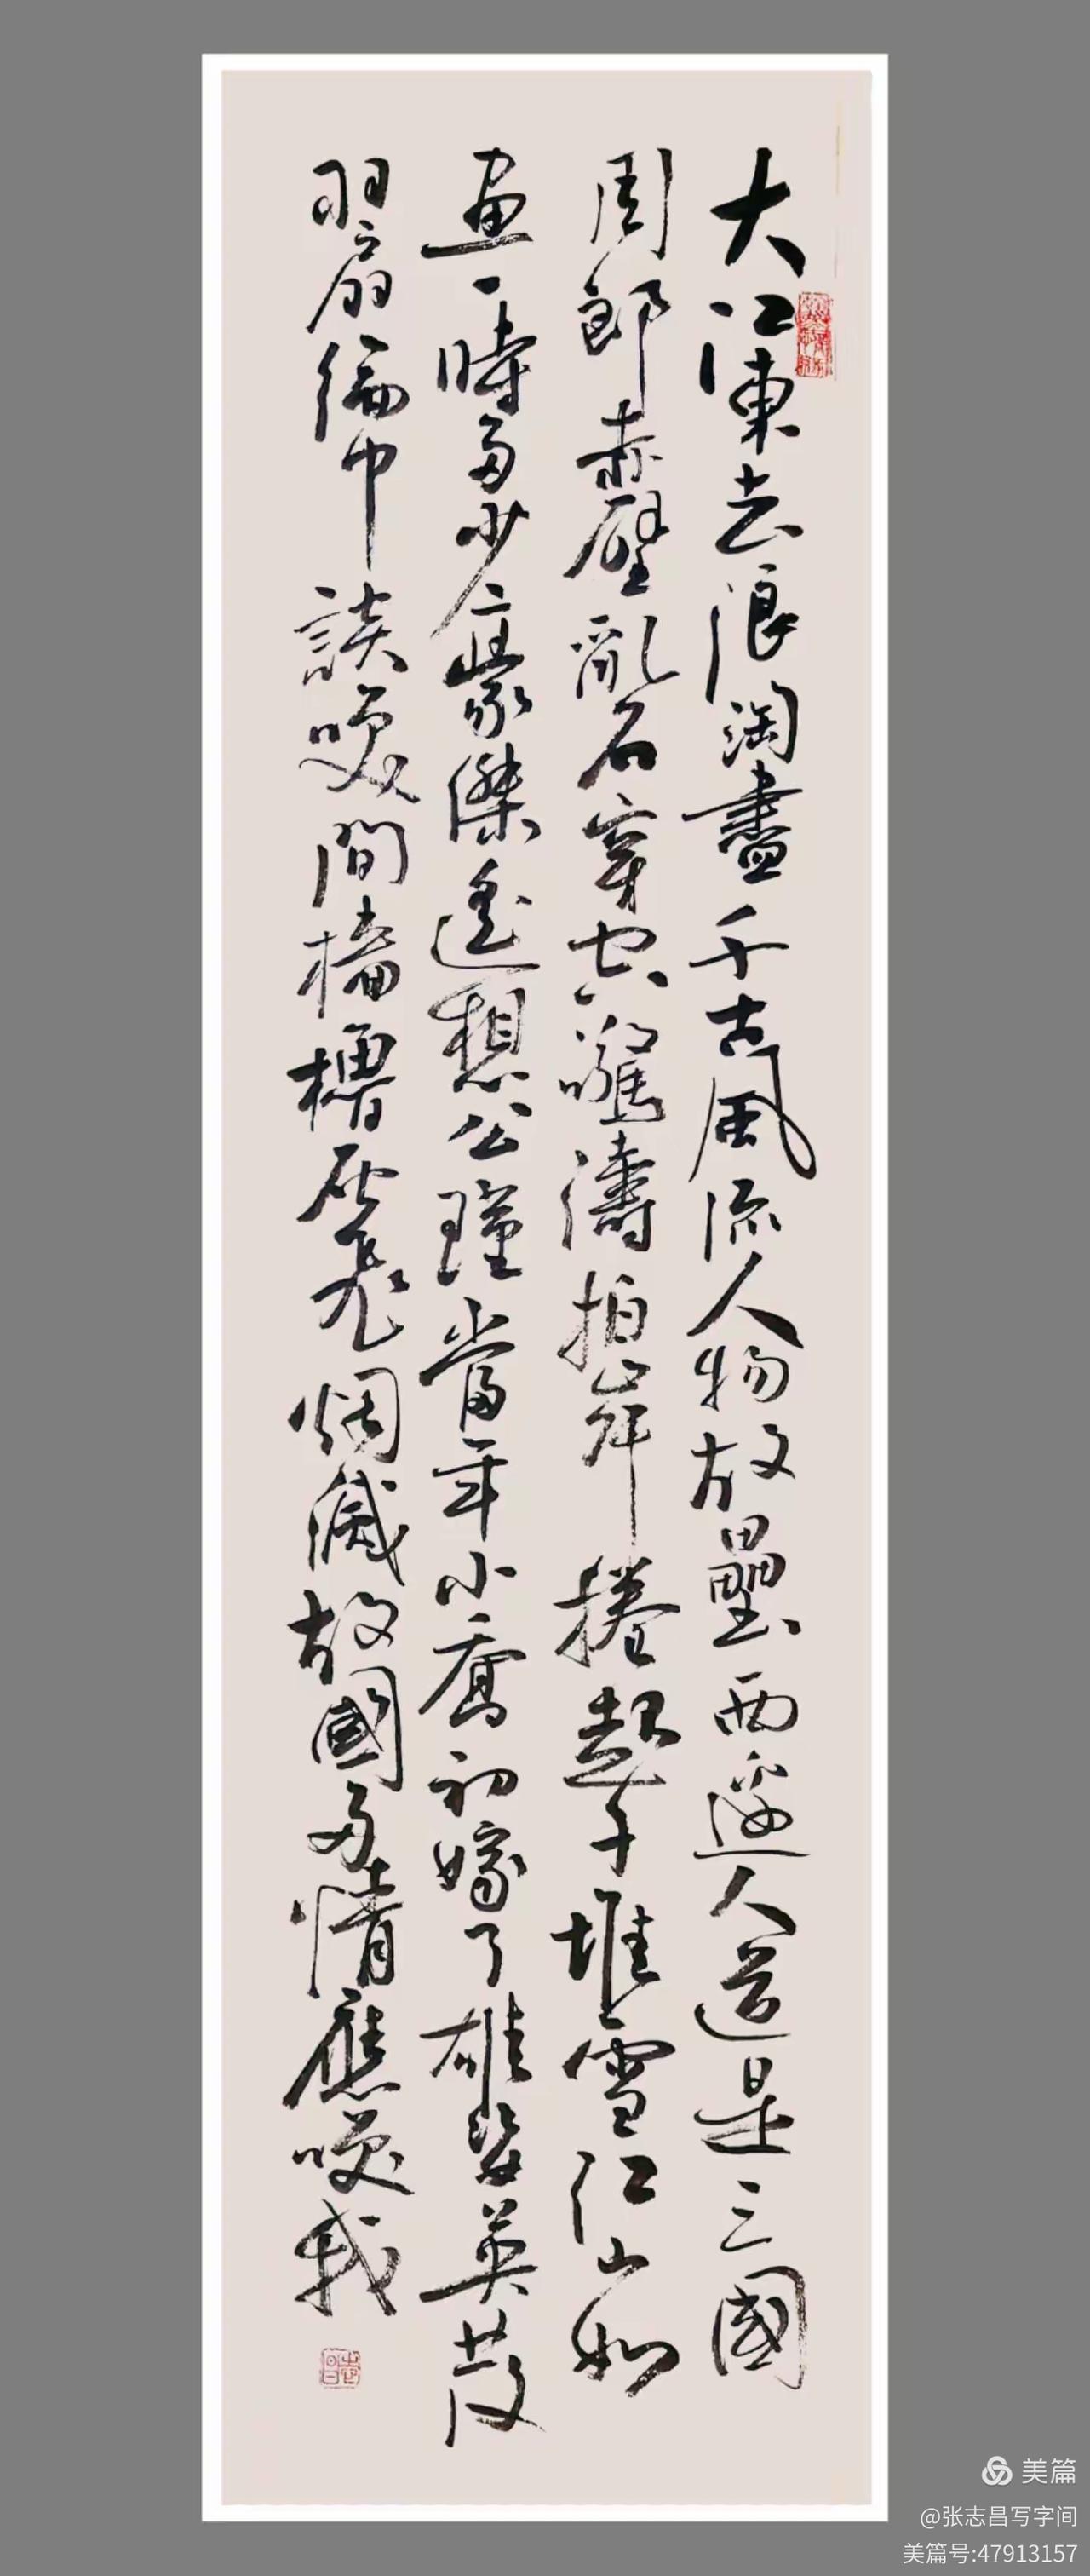 大江東去浪淘盡千古風流人物故壘西邊人道是三國
周郎赤壁亂石穿空驚濤拍岸捲起千堆雪江山如
畫一時多少豪傑遙想公瑾當年小喬初嫁了雄姿英發
羽扇綸巾談笑間檣櫓灰飛烟滅故國多情應笑我
志昌
美篇
@张志昌写字间
美篇号:47913157